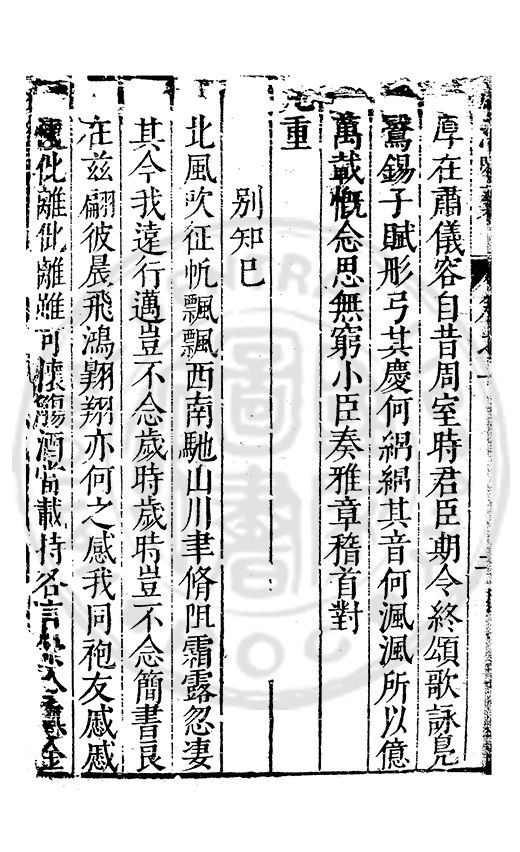 厚在肅儀容自昔周室時君臣期令終頌歌詠鳧
鷖錫子賦形弓其慶何綿綿其音何渢渢所以億
萬載慨念思無窮小臣奏雅章稽首對
重
別知已
北風吹征帆飄飄西南馳山川聿脩阻霜露忽凄
其今我遠行邁豈不念歲時歲時豈不念簡書良
在茲翩彼晨飛鴻翱翔亦何之感我同袍友戚戚
仳離仳離雖可懷觴酒當載持名言金